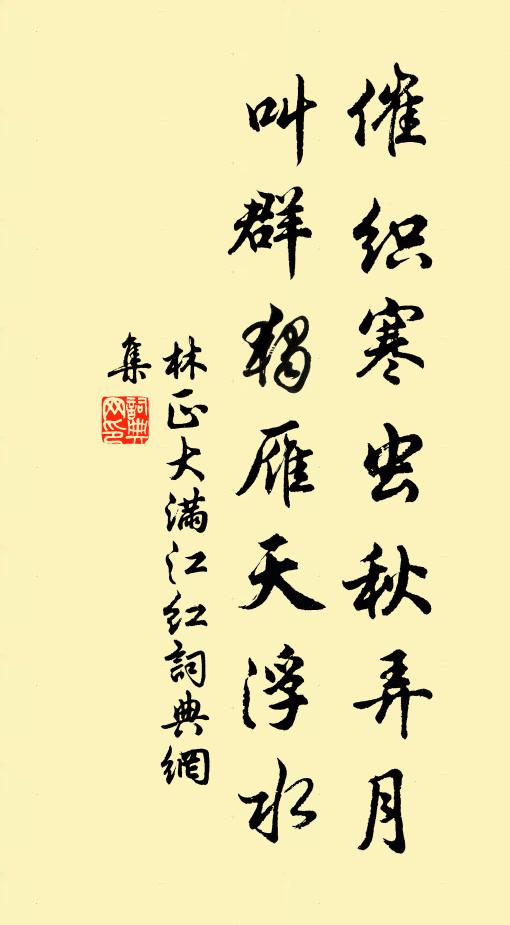 催织寒虫秋弄月
叫群獨雁天浮水
林正大满江红詞典網
集
詞典网印